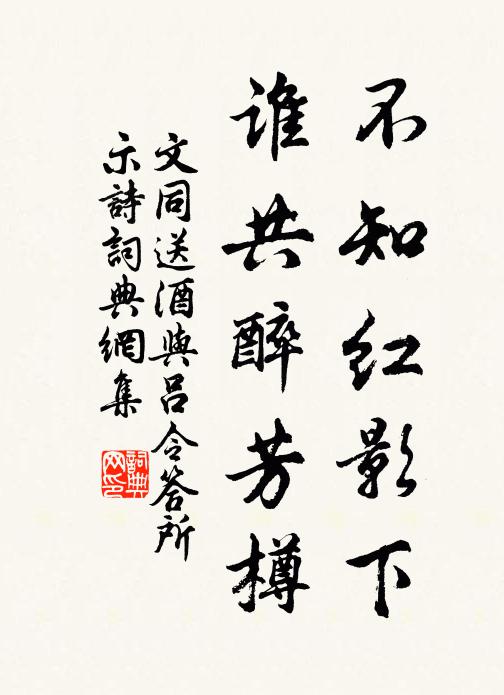 不知红影下
谁共醉芳樽
文同送酒與吕令答所
示詩詞典網集
詞典网印